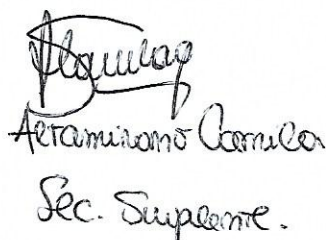 Altamirano Camila
Sec. Suplente.